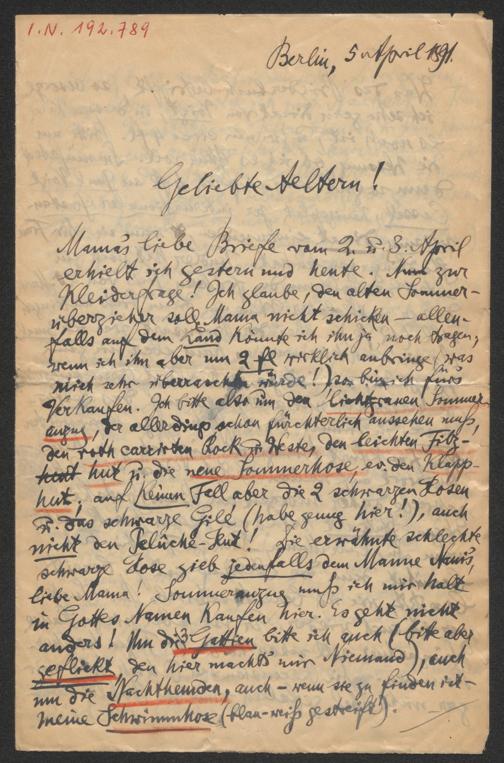 I.N. 192.789
Berlin, 5. April 1891.
Geliebte Aeltern!
Mama's liebe Briefe vom 2. u. 3. April
erhielt ich gestern und heute. Nun zur
Kleiderfrage! Ich glaube, den alten Sommer-
überzieher soll Mama nicht schicken – allen-
falls auf dem Land könnte ich ihn ja noch tragen,
wenn ich ihn aber um 2 fl wirklich anbringe (was
mich sehr überraschen würde!) so bin ich fürs
Verkaufen. Ich bitte also um den lichtgrauen Sommer
anzug, der allerdings schon fürchterlich aussehen muß,
den roth carrirten Rock u. Weste, den leichten Filz-
hut hut u. die neue Sommerhose, ev. den Klapp-
hut, auf keinen Fall aber die 2 schwarzen Hosen
u. das schwarze Gilé (habe genug hier!), auch
nicht den Pelüche-Hut! Die erwähnte schlechte
schwarze Hose gieb jedenfalls dem Manne
liebe Mama! Sommeranzug muß ich mir halt
in Gottes Namen kaufen hier. Es geht nicht
anders! Um die 3 Gattien bitte ich auch (bitte aber
geflickt, denn hier machts mir Niemand), auch
um die Nachthemden, auch – wenn sie zu finden ist –
meine Schwimmhose (blau-weiß gestreift).